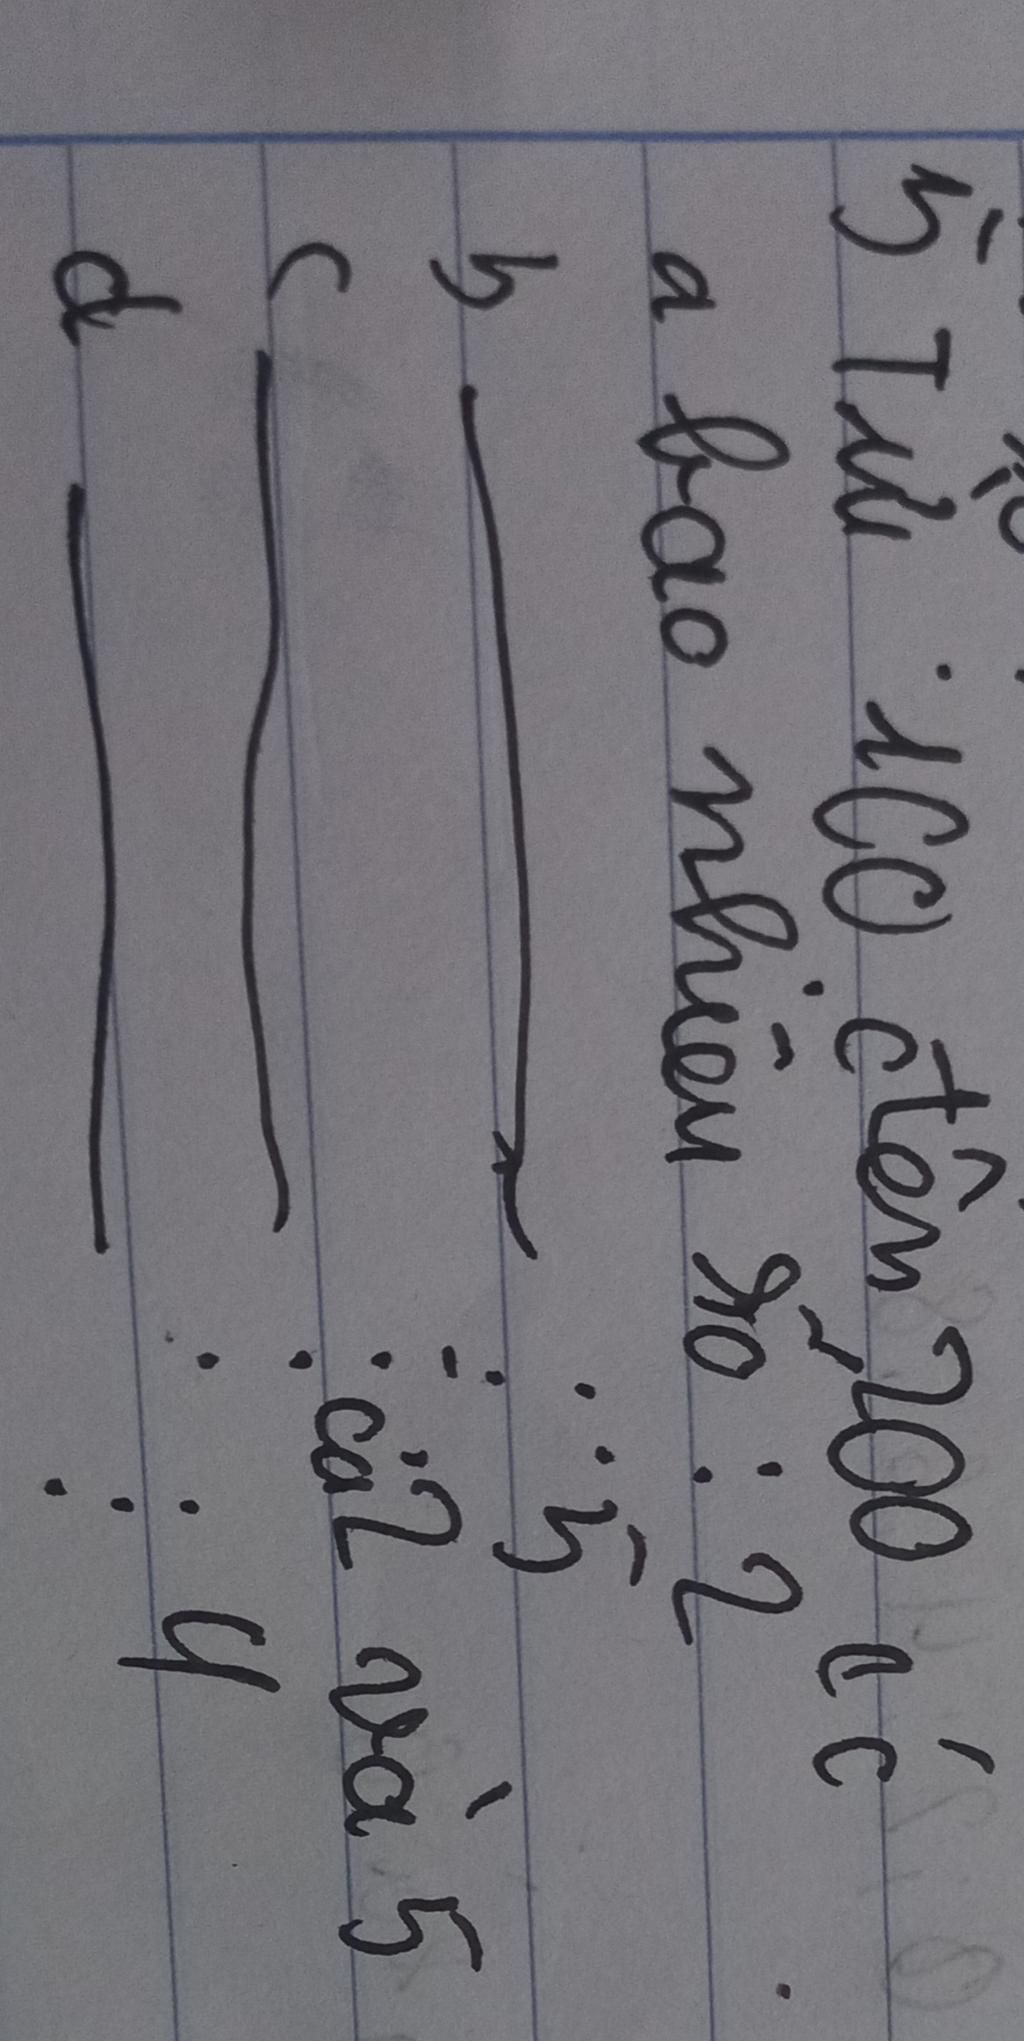 5 Từ 100 đến 200 có
a bao nhiêu số : 2
b : 5
c : cả 2 và 5
d : 4